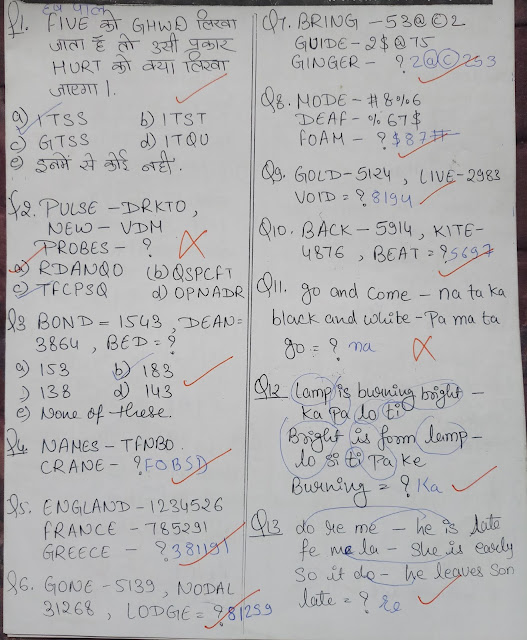 Q1. FIVE को GHWD लिखा
जाता है तो उसी प्रकार
HURT को क्या लिखा
जाएगा।
a) ITSS b) ITST
c) GTSS d) ITQU
e) इनमें से कोई नहीं.
Q2. PULSE – DRKTO,
NEW – VDM
PROBES – ?
a) RDANQO (b) QSPCFT
c) TFCPSQ d) OPNADR
Q3 BOND = 1543, DEAN =
3864, BED = ?
a) 153 b) 183
c) 138 d) 143
e) None of these.
Q4. NAMES – TFNBO
CRANE – ? FOBSD
Q5. ENGLAND – 1234526
FRANCE – 785291
GREECE – ? 381191
Q6. GONE – 5139, NODAL
31268, LODGE = ? 81259
Q7. BRING – 53@©2
GUIDE – 2$@75
GINGER – ? 2@©253
Q8. MODE – #8%6
DEAF – %67$
FOAM – ? $87#
Q9. GOLD – 5124, LIVE – 2983
VOID = ? 8194
Q10. BACK – 5914, KITE –
4876, BEAT = ? 5697
Q11. go and come – na ta ka
black and white – Pa ma ta
go = ? na
Q12 Lamp is burning bright –
Ka Pa lo ti
Bright is form lamp –
lo si ti Pa ke
Burning = ? Ka
Q13 do re me – he is late
fe me la – she is early
So it do – he leaves Son
late = ? re